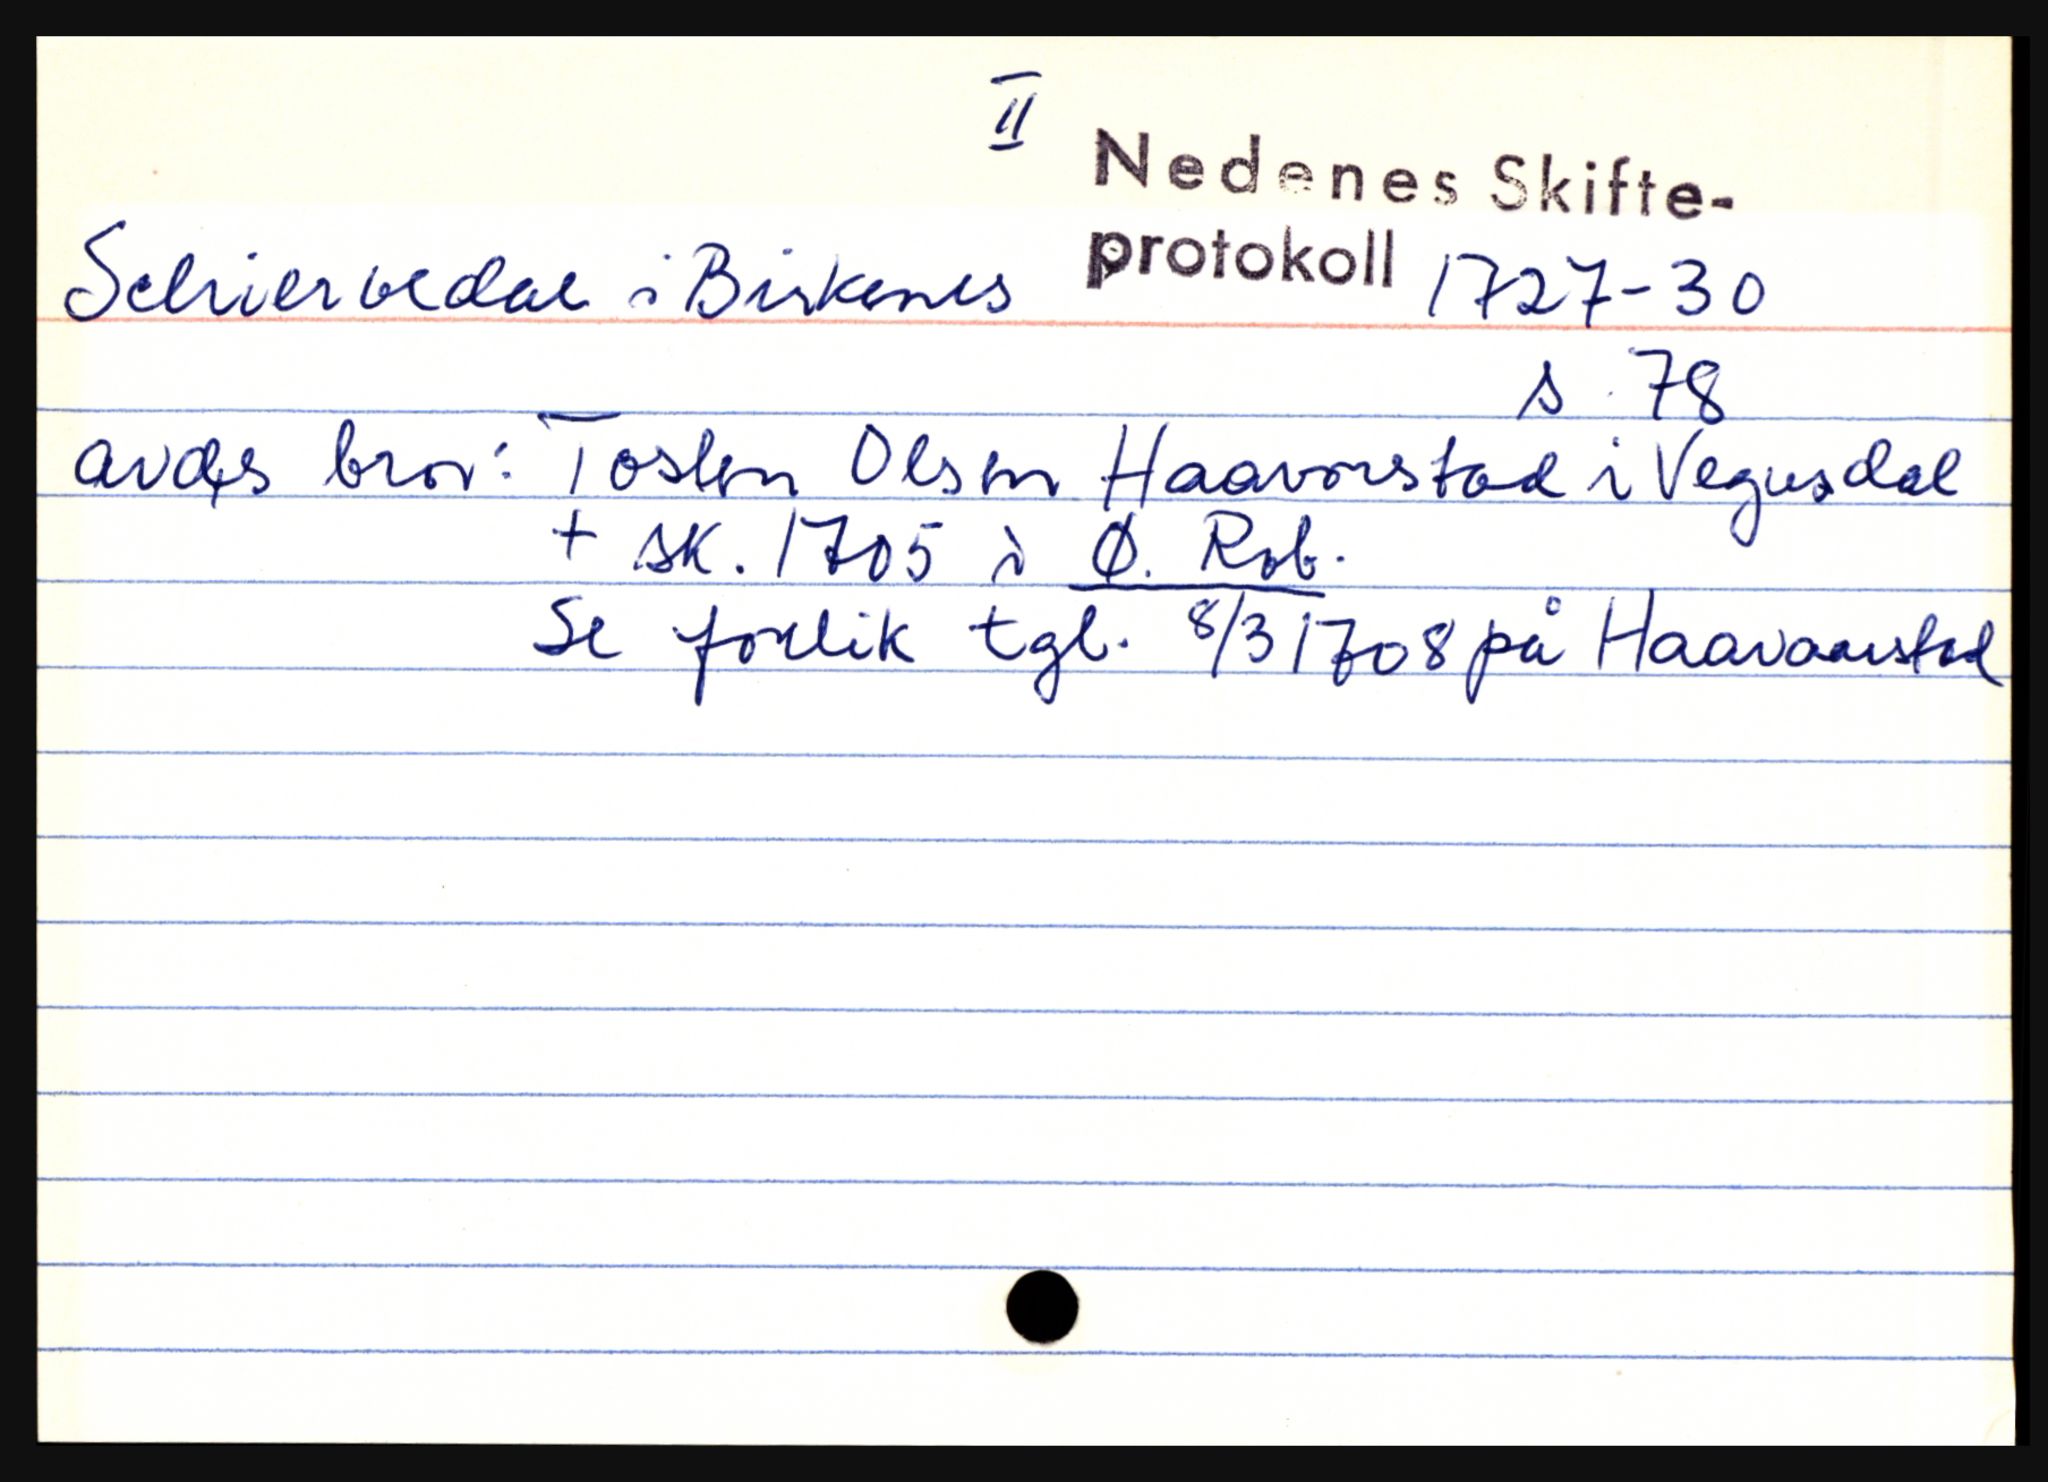 II
Nedenes Skifte-
protokoll 1727-30
Schiervedal i Birkenes
s. 78
avdøs bror: Tosten Olsen Haavorstad i Vegusdal
+ sk. 1705 i Ø. Rob.
Se forlik tgl. 8/3 1708 på Haavaarstad